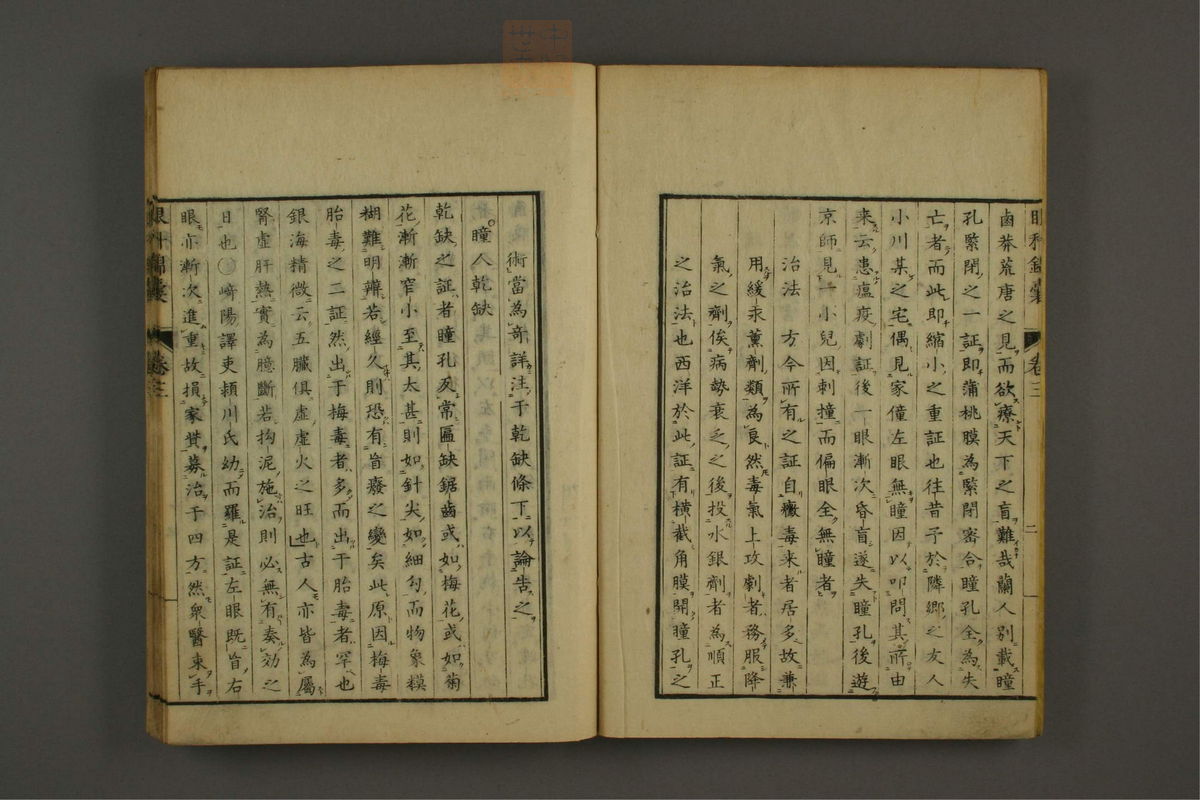 眼科錦囊 卷三 二
鹵莽荒唐之見而欲療天下之盲難哉蘭人別載瞳
孔緊閉之一証即蒲桃膜為緊閉密合瞳孔全為失
亡者而此即縮小之重証也往昔予於隣鄉之友人
小川某之宅偶見家僮左眼無瞳因以叩問其所由
来云患瘟疫劇証後一眼漸次昏盲遂失瞳孔後遊
京師見一小兒因刺撞而偏眼全無瞳者
治法 方今所有之証自黴毒来者居多故兼
用緩汞薰劑類為良然毒氣上攻劇者務服降
氣之劑俟病勢衰乏之後投水銀劑者為順正
之治法也西洋於此証有橫截角膜開瞳孔之
術當為奇詳注于乾缺條下以論告之
瞳人乾缺
乾缺之証者瞳孔反常匾缺鋸齒或如梅花或如菊
花漸漸窄小至其太甚則如針尖如細勾而物象糢
糊難明辨若經久則恐有盲癈之變矣此原因梅毒
胎毒之二証然出于梅毒者多而出于胎毒者罕也
銀海精微云五臟俱虛虛火之旺也古人亦皆為屬
腎虛肝熱實為臆斷若拘泥施治則必無有奏効之
日也〇崎陽譯吏頴川氏幼而羅是証左眼既盲右
眼亦漸次進重故損家貲募治于四方然眾醫束手
眼科錦囊 卷三